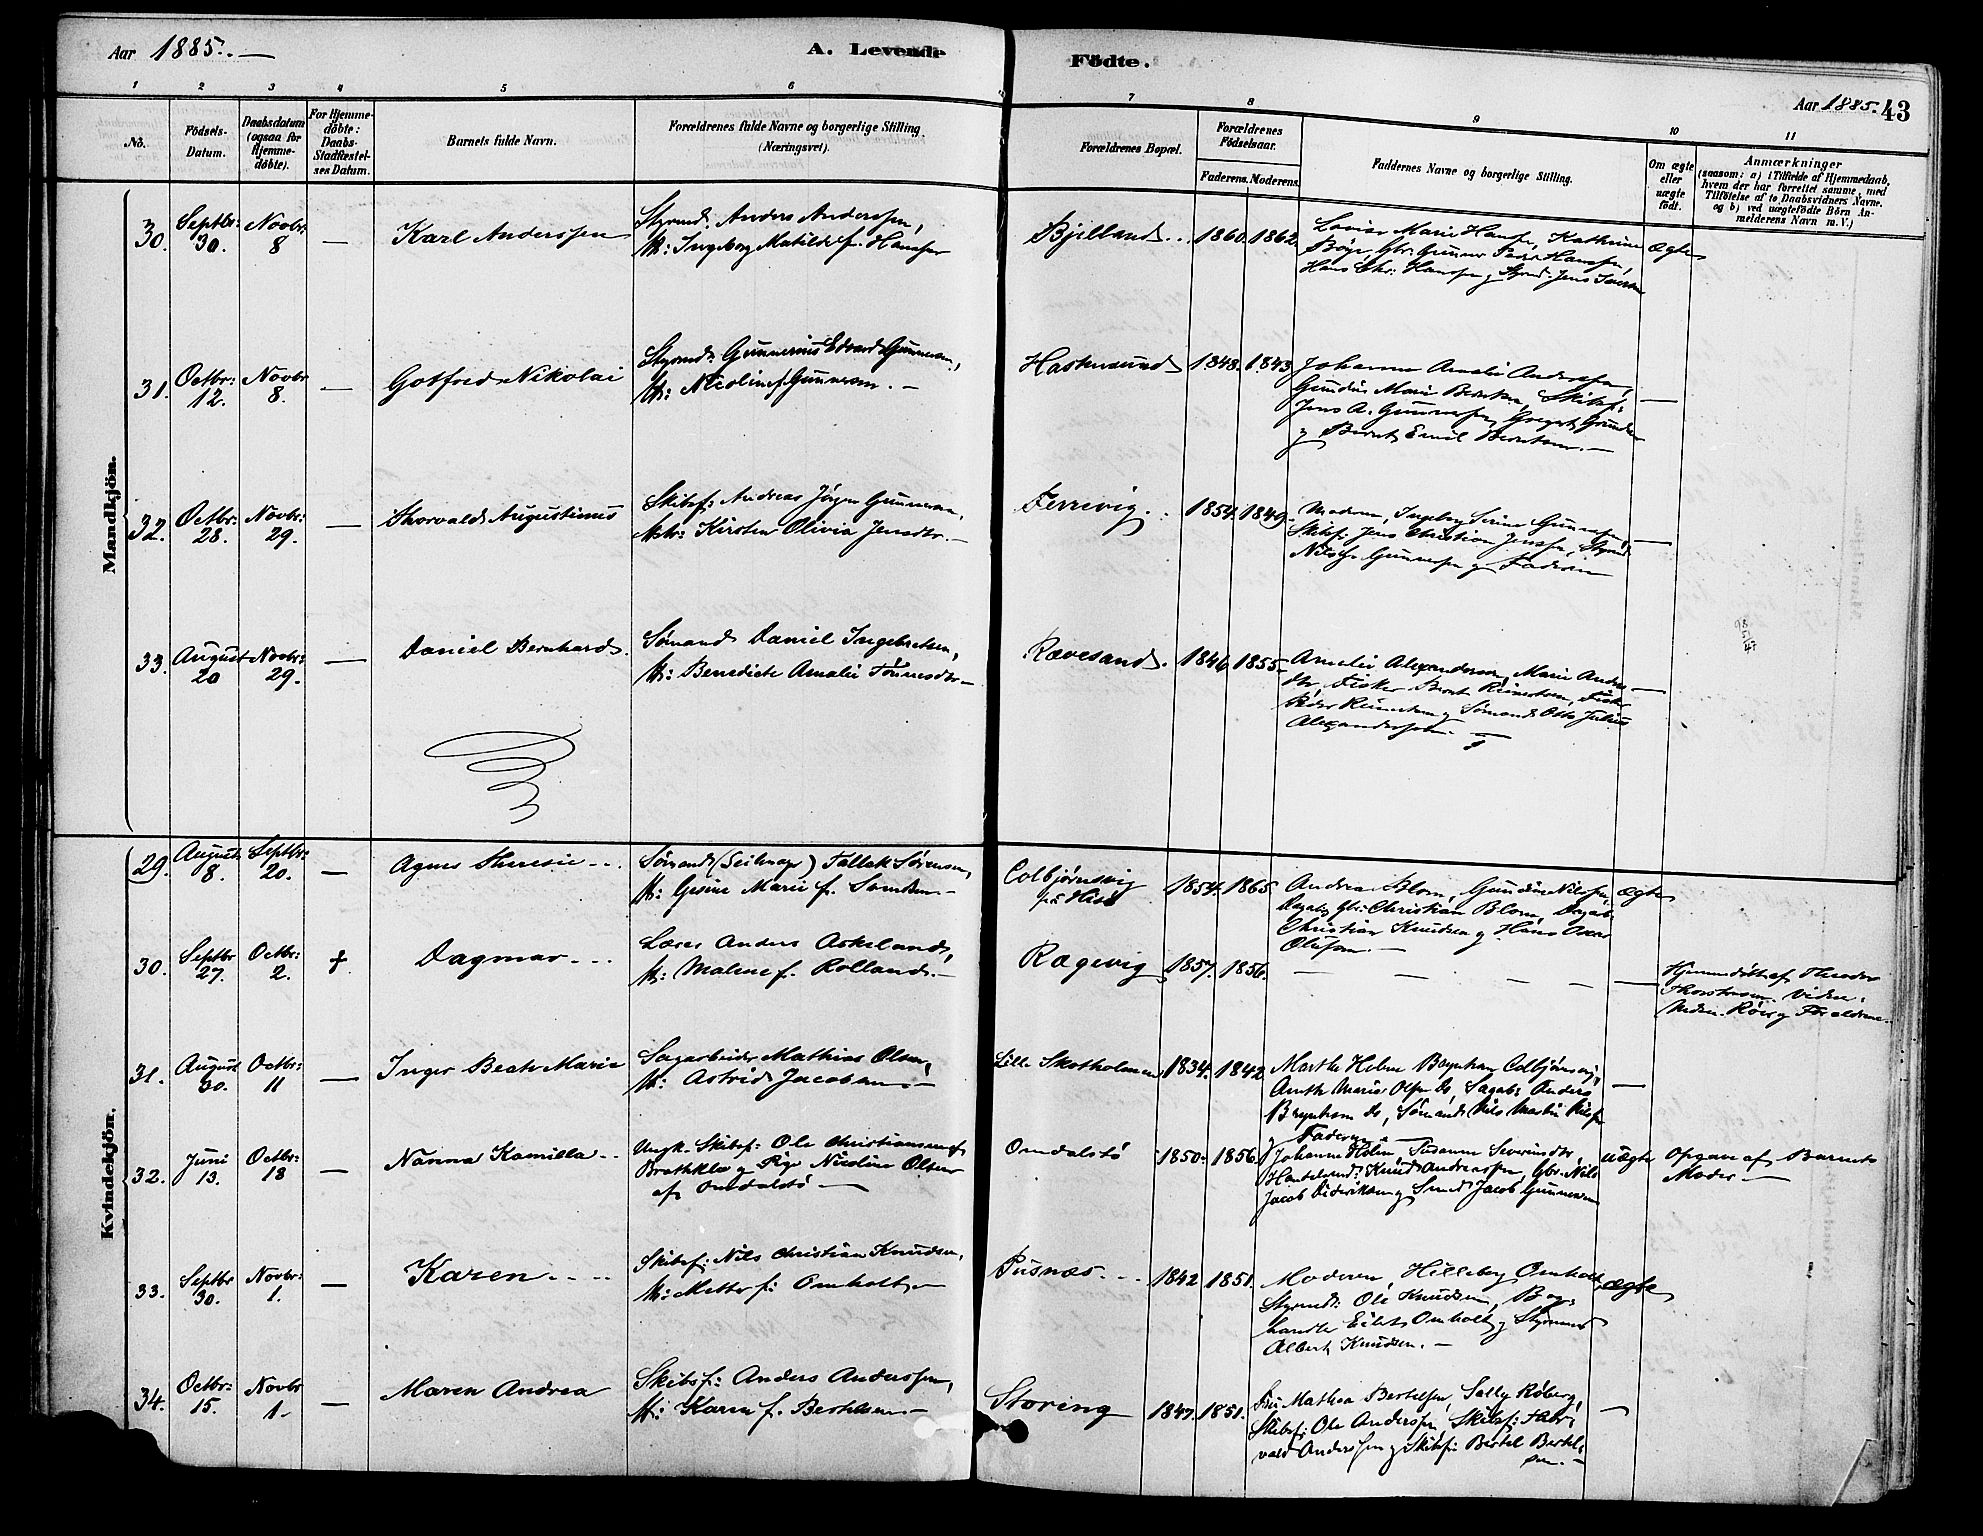 Aar 1885. —
A. Levende
Födte.
Aar 1885. 43
1 2 3 4 5 6 7 8 9 10 11
No.
Födsels-
Datum.
Daabsdatum
(ogsaa for
Hjemme-
döbte).
For Hjemme-
döbte:
Daabs-
Stadfæstel-
ses Datum.
Barnets fulde Navn.
Forældrenes fulde Navne og borgerlige Stilling.
(Næringsvei).
Forældrenes Bopæl.
Forældrenes
Födselsaar.
Faderens. Moderens.
Faddernes Navne og borgerlige Stilling.
Om ægte
eller
uægte
födt.
Anmærkninger
(saasom: a) i Tilfælde af Hjemmedaab,
hvem der har forrettet samme, med
Tilföielse af to Daabsvidners Navne.
og b) ved uægtefödte Börn An-
melderens Navn m. V.)
Mandkjön.
30. Septbr: 30. Novbr: 8 — Karl Anderssen
Styrmd: Anders Anderssen,
H: Ingeborg Matilde f. Hanssen
Bjelland... 1860. 1862
Lovise Marie Hansen, Kathrine
Bøye, Gbr: Gunner Peder Hanssen,
Hans Chr: Hanssen g Styrmd: Jens
ægte
31. Octbr: 12. Novbr 8. — Gotfred Nikolai
Styrmd: Gunnerius Edvard Gunnersen,
H: Nicoline f. Gunnersen. —
Hastensund 1848. 1843
Johanne Amalie Anderssen,
Gundine Marie Berntsen, Skibsf:
Jens A. Gunnersen,
g Bernt Emil Berntsen. —
—
32. Octbr: 28. Novbr: 29. — Thorvald Augustinus
Skibsf: Andreas Jørgen Gunnersen,
Hstr: Kirsten Olivia Jensdtr. —
Færevig. . 1854. 1849.
Moderen, Ingeborg Serine Gunnersen,
Skibsf: Jens Christian Jenssen, Styrmd:
Nils Gunnersen g Faderen
—
33. August 20 Novbr: 29. — Daniel Bernhard.
Sømand Daniel Ingebretsen,
H: Benedicte Amalie Tönnesdtr —
Rævesand. 1846 1855
Amalie Alexandersen, Marie Andrs-
dtr, Fisker Bernt Reinertsen, Fisker
Peder Reinertsen g Sømand Otto Julius
Alexanderssen. —
—
Kvindekjön.
29. August 8. Septbr: 20. — Agnes Theresie...
Sömand (Seilmager) Tallak Sørensen,
H: Gesine Marie f. Lundsen —
Colbjørnsvig
på Hisö
1854. 1865
Andrea Blom, Gundine Nilssen,
Dagarb Gbr: Christian Blom, Dagarb
Christian Knudsen g Hans Oscar
Olufsen. —
ægte
30. Septbr 27. Octbr: 2. † Dagmar...
Læser Anders Askeland,
H: Malene f. Rolland. —
Rægevig 1857. 1856.
— — — —
—
Hjemmedöbt af Theodor
Thorstensen. Vidne:
Maden. Röer g Forældrene.
31. August 30. Octbr: 11 — Inger Beate Marie
Sagarbeider Mathias Olsen,
H: Astrid Jacobsen —
Lille Skotholmen 1834. 1842
Marthe Helene Bryntsen Colbjørnsvig,
Anth Marie Olsen Do, Sagarb: Anders
Bryntsen do, Sömand Nils Martin Nilsen
g Faderen —
—
32. Juni 13. Octbr: 18 — Nanna Kamilla..
Ungk. Skibsf: Ole Christiansen af
Bratteklev g Pige Nicoline Olsen
af Omdalsö —
Omdalstö 1850. 1856.
Johanne Holm, Susanne Severinsdtr,
Handelsmd: Knud Andreassen, Gbr: Nils
Jacob Diderikssen g Smed Jacob Gunnersen
uægte
Opgav af Barnets
Moder —
33. Septbr 30. Novbr: 1. — Karen....
Skibsf: Nils Christian Knudsen,
H: Mette f: Omholt —
Pusnæs... 1842 1851.
Moderen, Hilleborg Omholt
Styrmd: Ole Knudsen, Bog-
handler Eilert Omholt g Styrmand
Albert Knudsen. —
ægte
34. Octbr: 15. Novbr 1. — Maren Andrea
Skibsf: Anders Anderssen,
H: Karen f. Bertelsen —
Storing 1847. 1851.
Fru Mathea Bertelsen, Sally Röberg,
Skibsf: Ole Anderssen, Skibsf: Thor-
vald Anderssen g Skibsf: Bertel Bertel-
sen. —
—